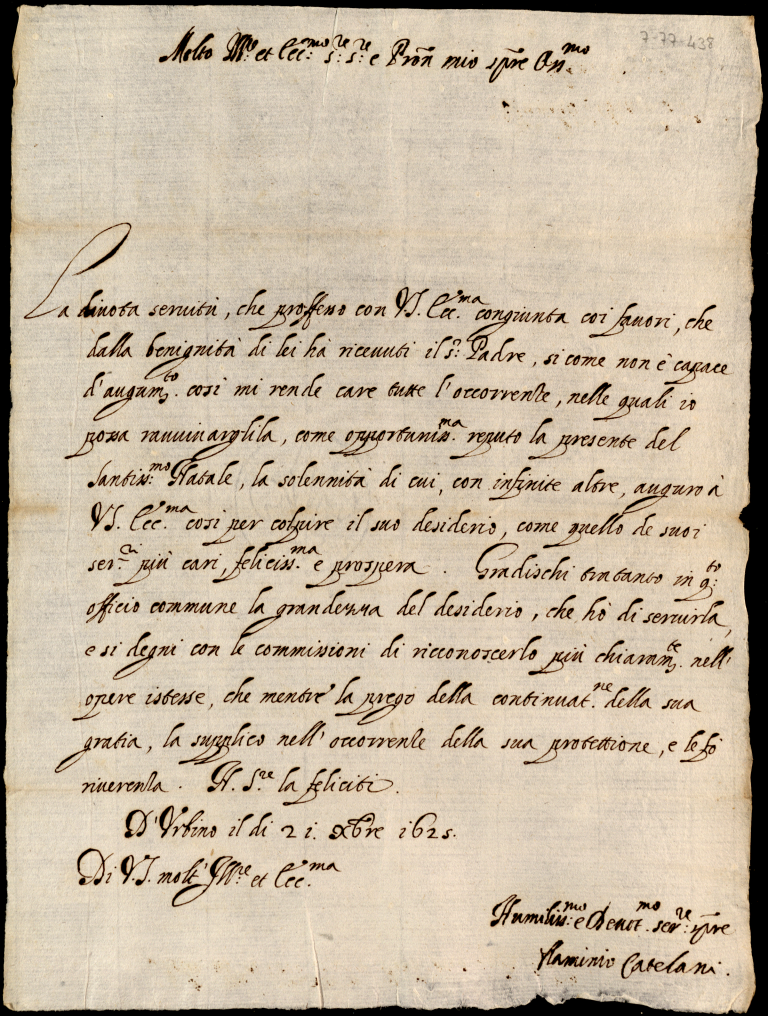 7-77-438
Molto Ill.re et Ecc.mo S.re S.re e Pron mio sp're Oss.mo
La divota servitù, che proffesso con V.S. Ecc.ma congiunta coi favori, che
dalla benignità di lei hà ricevuti il S.r Padre, si come non è capace
d'augum.to così mi rende care tutte l'occorrenze, nelle quali io
possa ravvivargliela, come opportuniss.ma reputo la presente del
Santiss.mo Natale, la solennità di cui, con infinite altre, auguro à
V.S. Ecc.ma così per colpire il suo desiderio, come quello de suoi
ser.ri più cari, feliciss.ma e prospera. Gradischi trattanto in q.to
officio commune la grandezza del desiderio, che hò di servirla,
e si degni con le commissioni di ricconoscerlo più chiaram.te nell'
opere istesse, che mentre la prego della continuat.ne della sua
gratia, la supplico nell'occorrenze della sua protettione, e le fò
riverenza. N. S.re la feliciti.
D'Urbino il di 21. Xbre 1625.
Di V.S. molt'Ill.re et Ecc.ma
Humiliss.mo e Devot.mo ser.re sp're
Flaminio Catelani.